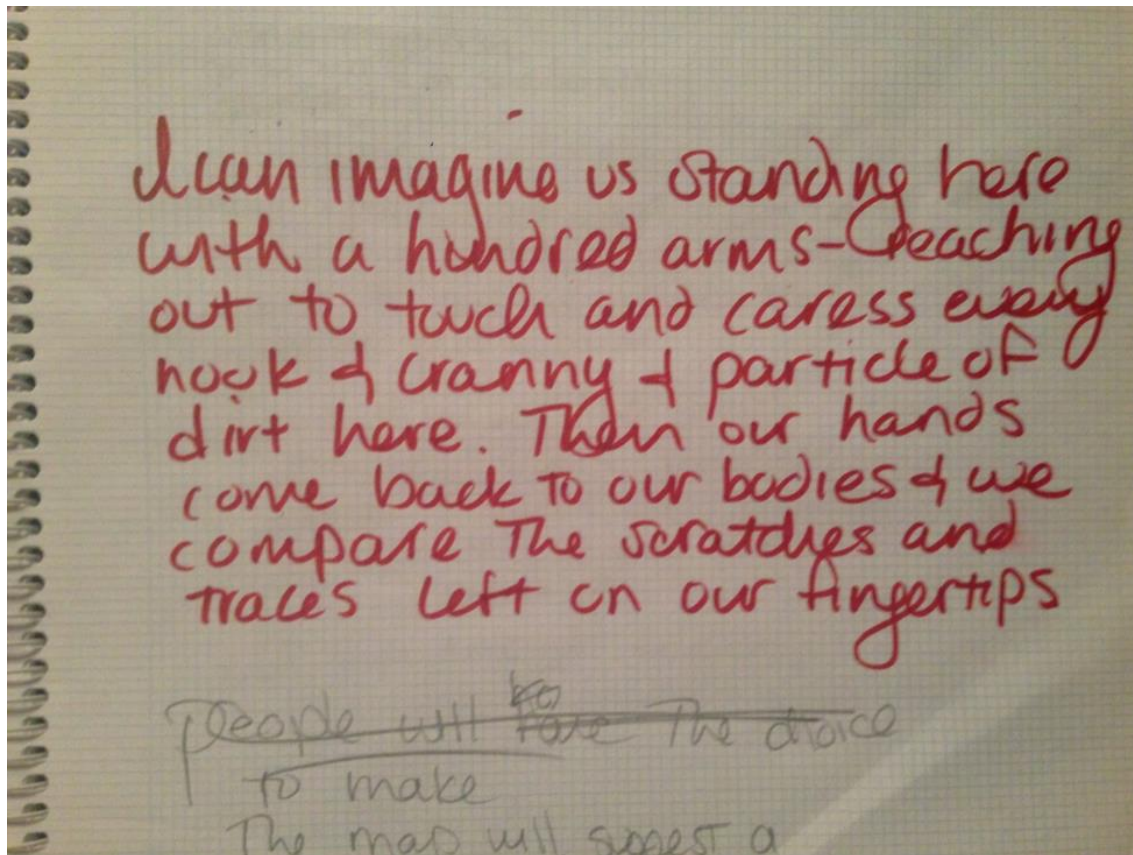 I can imagine us standing here
with a hundred arms - reaching
out to touch and caress every
nook & cranny & particle of
dirt here. Then our hands
come back to our bodies & we
compare the scratches and
traces left on our fingertips
people will have the choice
to make
The map will suggest a